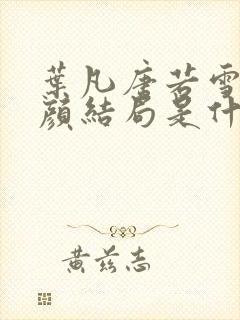 葉凡唐若雪
顏結局是什
黄兹志